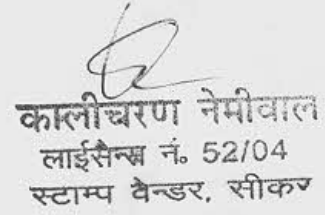 कालीचरण नेमीवाल
लाईसैन्स नं. 52/04
स्टाम्प वैन्डर, सीकर